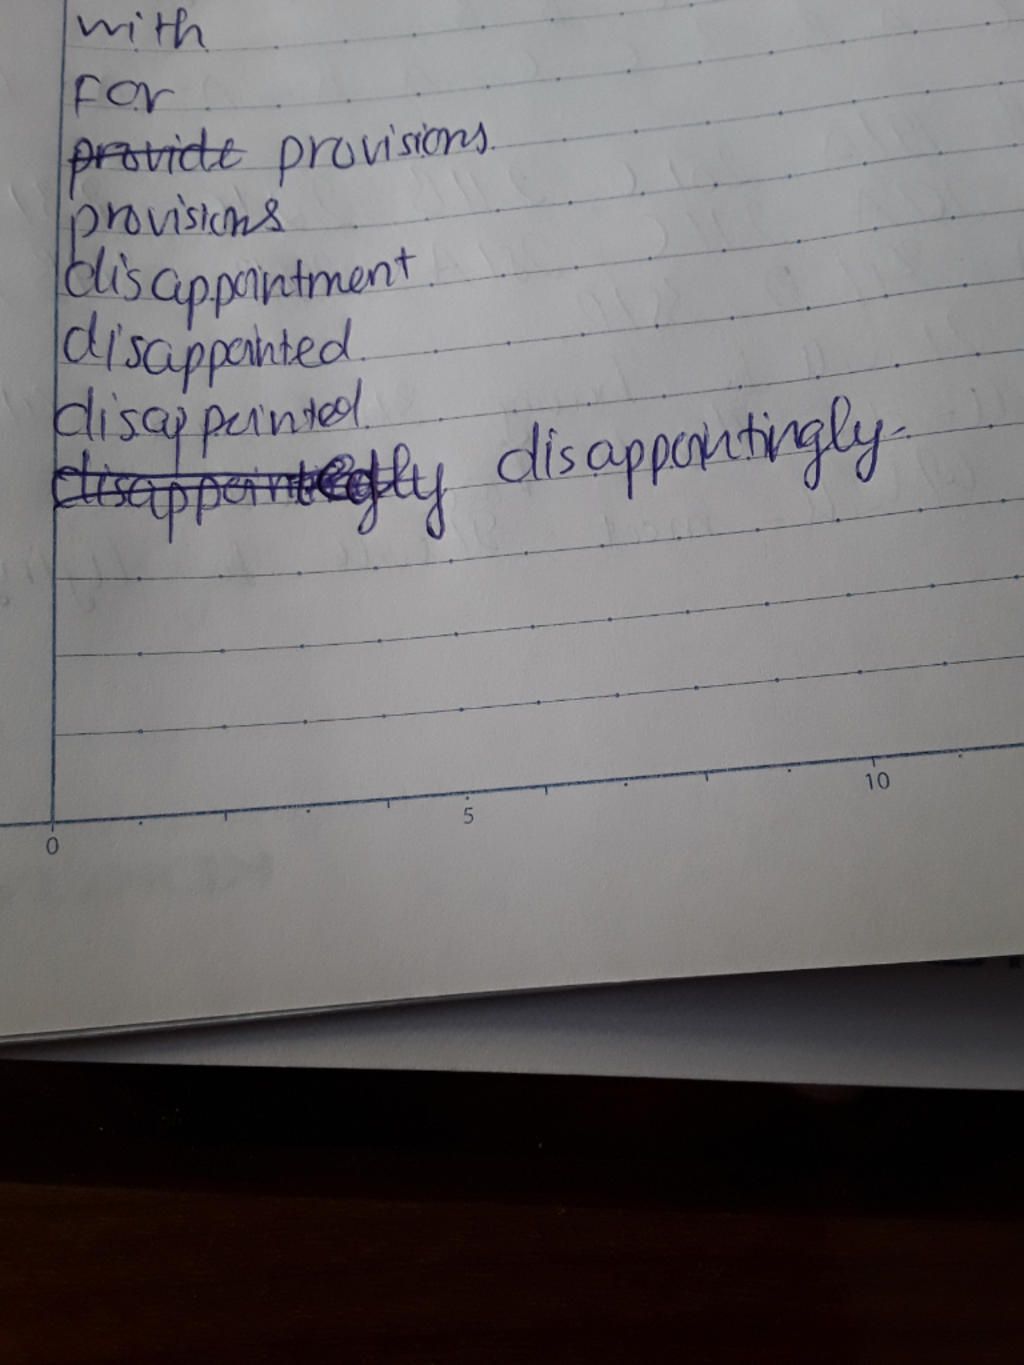 with
For
provide provisions.
provisions
disappointment
disappointed
disappointed
disappointedly disappointingly.
0 5 10